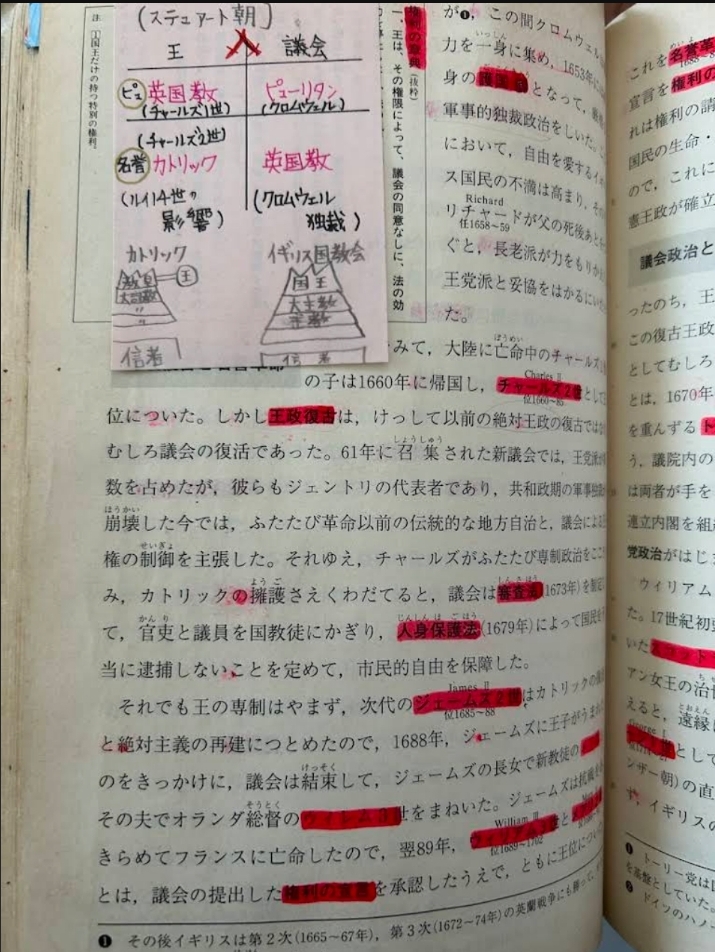 注 ①国王だけの持つ特別の権利。
(ステュアート朝)
王 議会
ピュ 英国教 ピューリタン
(チャールズ1世) (クロムウェル)
(チャールズ2世)
名誉 カトリック 英国教
(ルイ14世の (クロムウェル
影響) 独裁)
カトリック イギリス国教会
教皇 王 国王
大司教 大主教
〃 主教
信者 信者
の章典(抜粋)
一、王は、その権限によって、議会の同意なしに、法の効
が❶,この間クロムウェル
力を一身に集め,1653年
身の護国 となって,
軍事的独裁政治をしいた。
において,自由を愛するイ
ス国民の不満は高まり,
Richard
リチャードが父の死後あと
任1658~59
ぐと,長老派が力をもりか
王党派と妥協をはかるにい
た。
みて,大陸に亡命中のチャールズ1
Charles II
の子は1660年に帰国し,チャールズ2世として
位1660~85
位についた。しかし王政復古は,けっして以前の絶対王政の復古ではな
むしろ議会の復活であった。61年に召集された新議会では,王党派
数を占めたが,彼らもジェントリの代表者であり,共和政期の軍事独裁
崩壊した今では,ふたたび革命以前の伝統的な地方自治と,議会による
権の制御を主張した。それゆえ,チャールズがふたたび専制政治をここ
み,カトリックの擁護さえくわだてると,議会は審査法(1673年)を制定
て,官吏と議員を国教徒にかぎり,人身保護法(1679年)によって国民を
当に逮捕しないことを定めて,市民的自由を保障した。
James II
それでも王の専制はやまず,次代のジェームズ2世はカトリックの復
位1685~88
と絶対主義の再建につとめたので,1688年,ジェームズに王子がうまれ
のをきっかけに,議会は結束して,ジェームズの長女で新教徒の
その夫でオランダ総督のウィレム3世をまねいた。ジェームズは抗戦を
William III
きらめてフランスに亡命したので,翌89年,ウィリアム 世と
位1689~1702
とは,議会の提出した権利の宣言を承認したうえで,ともに王位につい
❶ その後イギリスは第2次(1665~67年),第3次(1672~74年)の英蘭戦争にも勝って,
これを名誉革
宣言を権利の
れは権利の請
国民の生命・
ので,これに
憲王政が確立
議会政治と
ったのち,王
この復古王政
としてむしろ
とは,1670年
を重んずるト
う,議院内の
は両者が手を
連立内閣を組
党政治がはじ
ウィリアム
た。17世紀初
いたスコット
アン女王の治
えると,遠縁
George I
として
ンザー朝)の直
ず,イギリスの
❶ トーリー党は
を基盤としていた。
❷ ドイツのハノー